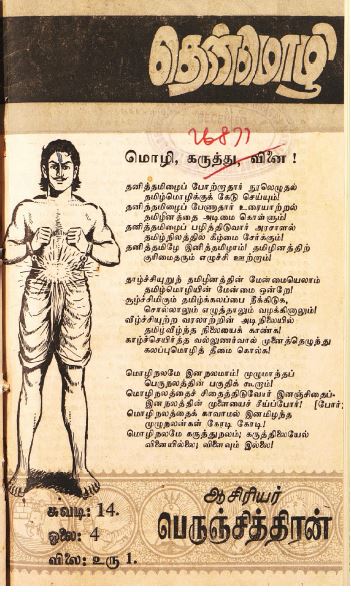 தென்மொழி
26877
மொழி, கருத்து, வினை !
தனித்தமிழைப் போற்றாதார் நூலெழுதல்
தமிழ்மொழிக்குக் கேடு செய்யும்!
தனித்தமிழைப் பேணாதார் உரையாற்றல்
தமிழினத்தை அடிமை கொள்ளும்!
தனித்தமிழைப் பழித்திடுவார் அரசாளல்
தமிழ்நிலத்தில் கீழ்மை சேர்க்கும்!
தனித்தமிழே இனித்தமிழாம்! தமிழினத்திற்
குரிமைதரும் எழுச்சி ஊற்றாம்!
தாழ்ச்சியுறுந் தமிழினத்தின் மேன்மையெலாம்
தமிழ்மொழியின் மேன்மை ஒன்றே!
சூழ்ச்சிமிகும் தமிழ்க்கலப்பை நீக்கிடுக,
சொல்லாலும் எழுத்தாலும் வழக்கினாலும்!
வீழ்ச்சியுற்ற வரலாற்றின் அடிநிலையில்
தமிழ்வீழ்ந்த நிலையைக் காண்க!
காழ்ச்செயிர்த்த வல்லுணர்வால் முனைத்தெழுந்து
கலப்புமொழித் தீமை கொல்க!
மொழிநலமே இனநலமாம்! முழுமாந்தப்
பெருநலத்தின் பகுதிக் கூறாம்!
மொழிநலத்தைச் சிதைத்திடுவோர் இனஞ்சிதைப்-
இனநலத்தின் முனையைச் சீய்ப்போர்! [போர்;
மொழிநலத்தைக் காவாமல் இனமிழந்த
முழுநலன்கள் கோடி கோடி!
மொழிநலமே கருத்துநலம்; கருத்திலையேல்
வினையில்லை; விளைவும் இல்லை!
சுவடி: 14.
ஓலை: 4
விலை: உரு 1.
ஆசிரியர்
பெருஞ்சித்திரன்